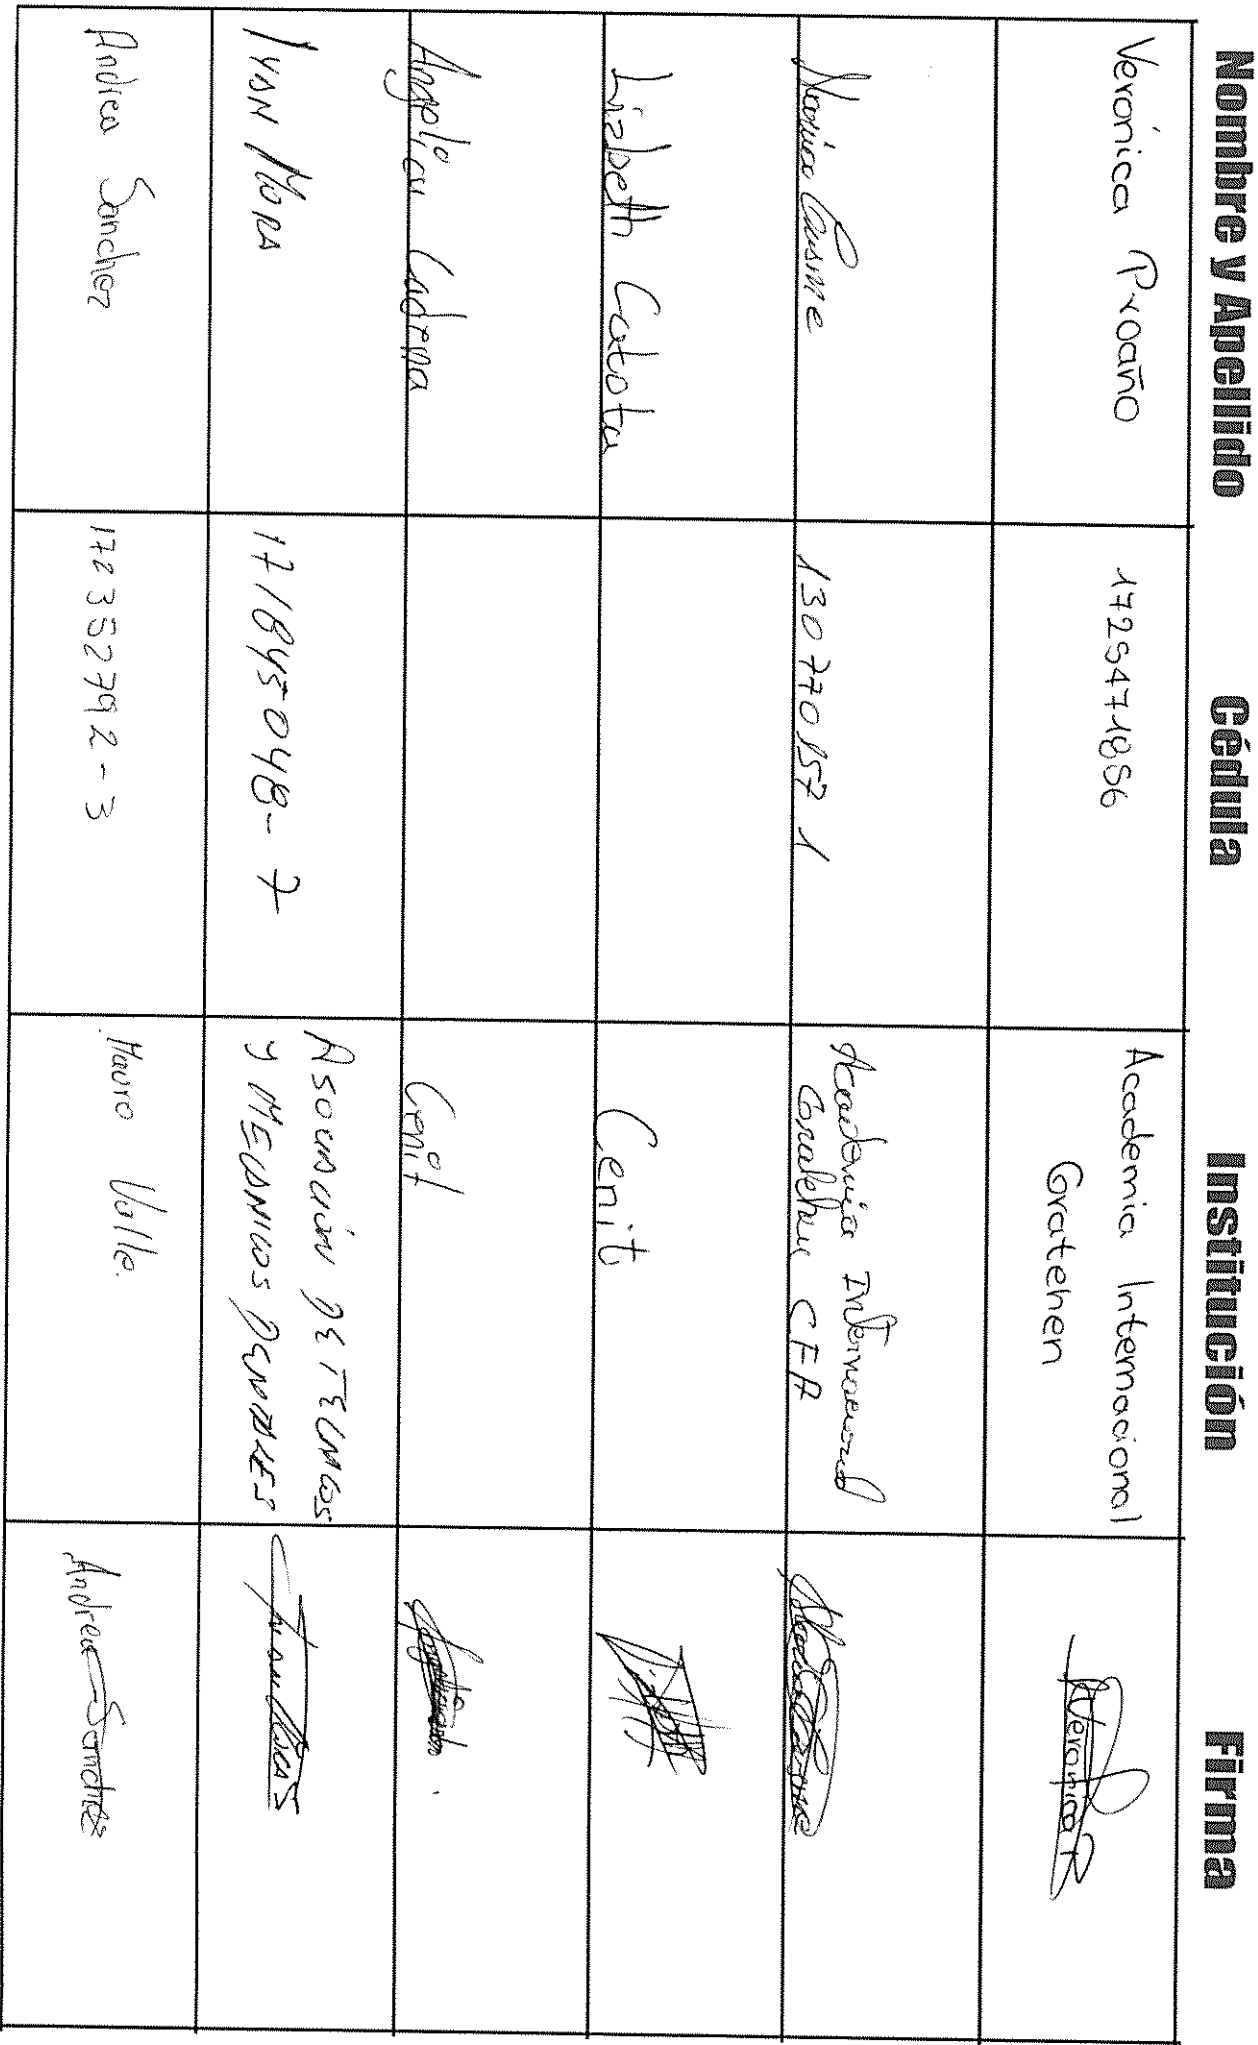 Nombre y Apellido Cédula Institución Firma
Verónica Proaño 1725471856 Academia Internacional
Gratehen
Veronica P
Cusme 130770157 1 Academia Internacional
CFA
Lizbeth Catota Cenit
Angelica Cadena Cenit
IVAN MORA 171845048-7 ASOCIACIÓN DE TECNICOS
Y MECANICOS DENTALES
Andrea Sanchez 172352792-3 Mauro Valle. Andrea Sanchez